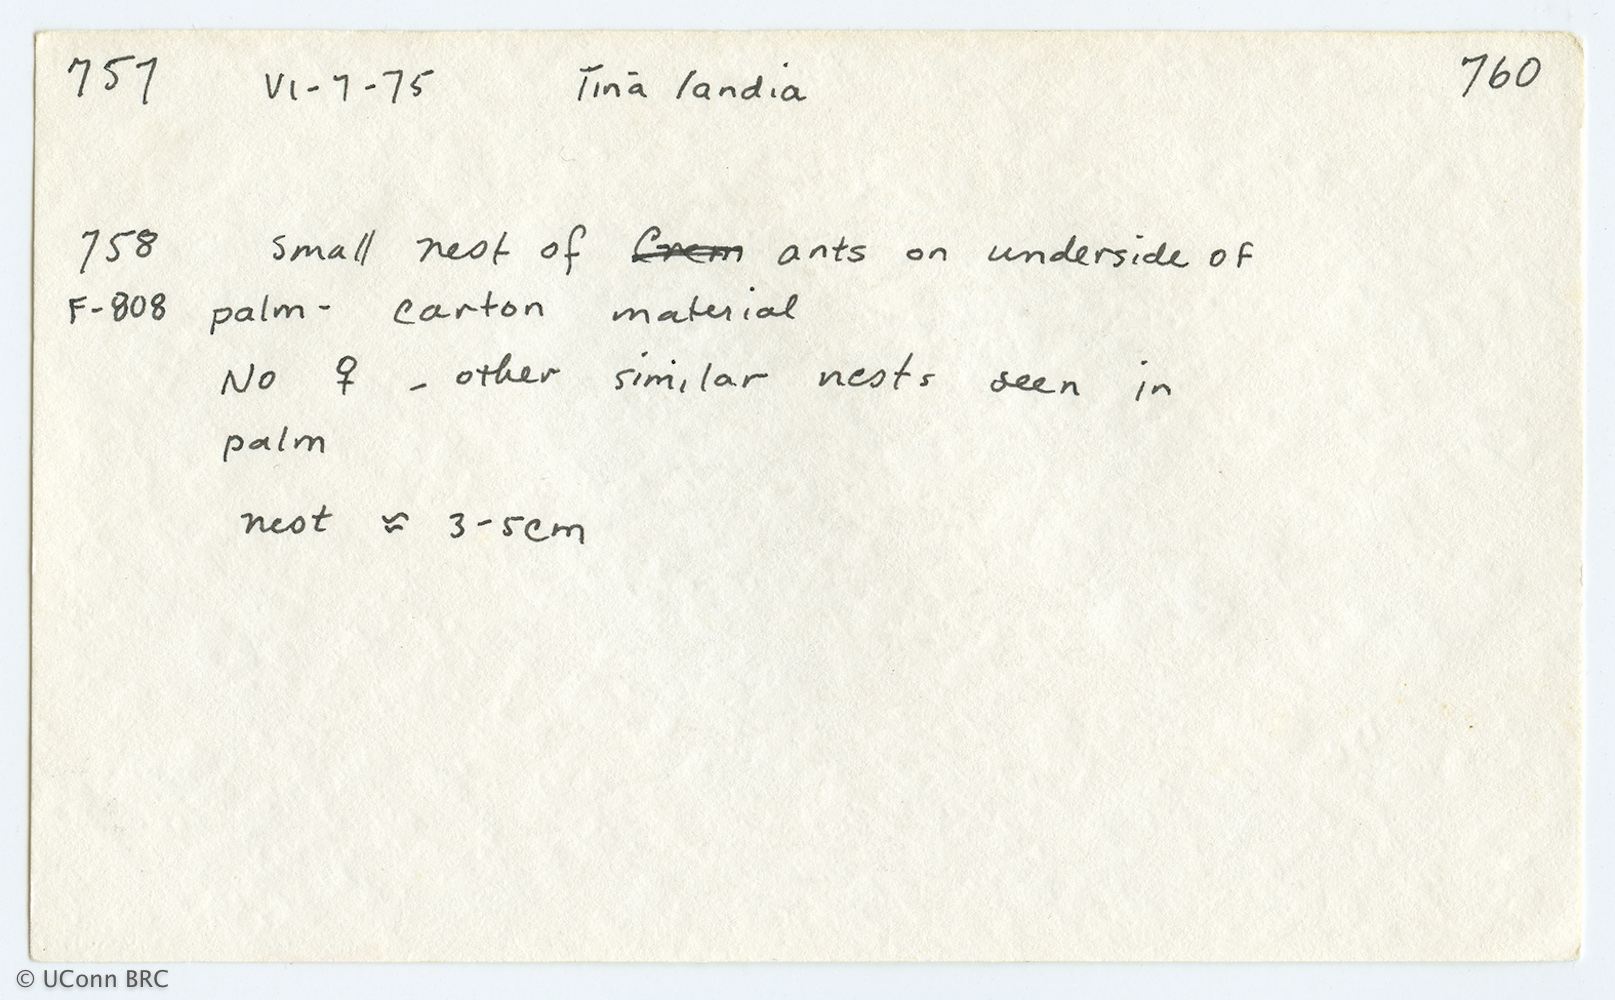 757 VI-7-75 Tinālandia 760
758 Small nest of Crem ants on underside of
F-808 palm - carton material
No ♀ - other similar nests seen in
palm
nest ≈ 3-5cm
© UConn BRC